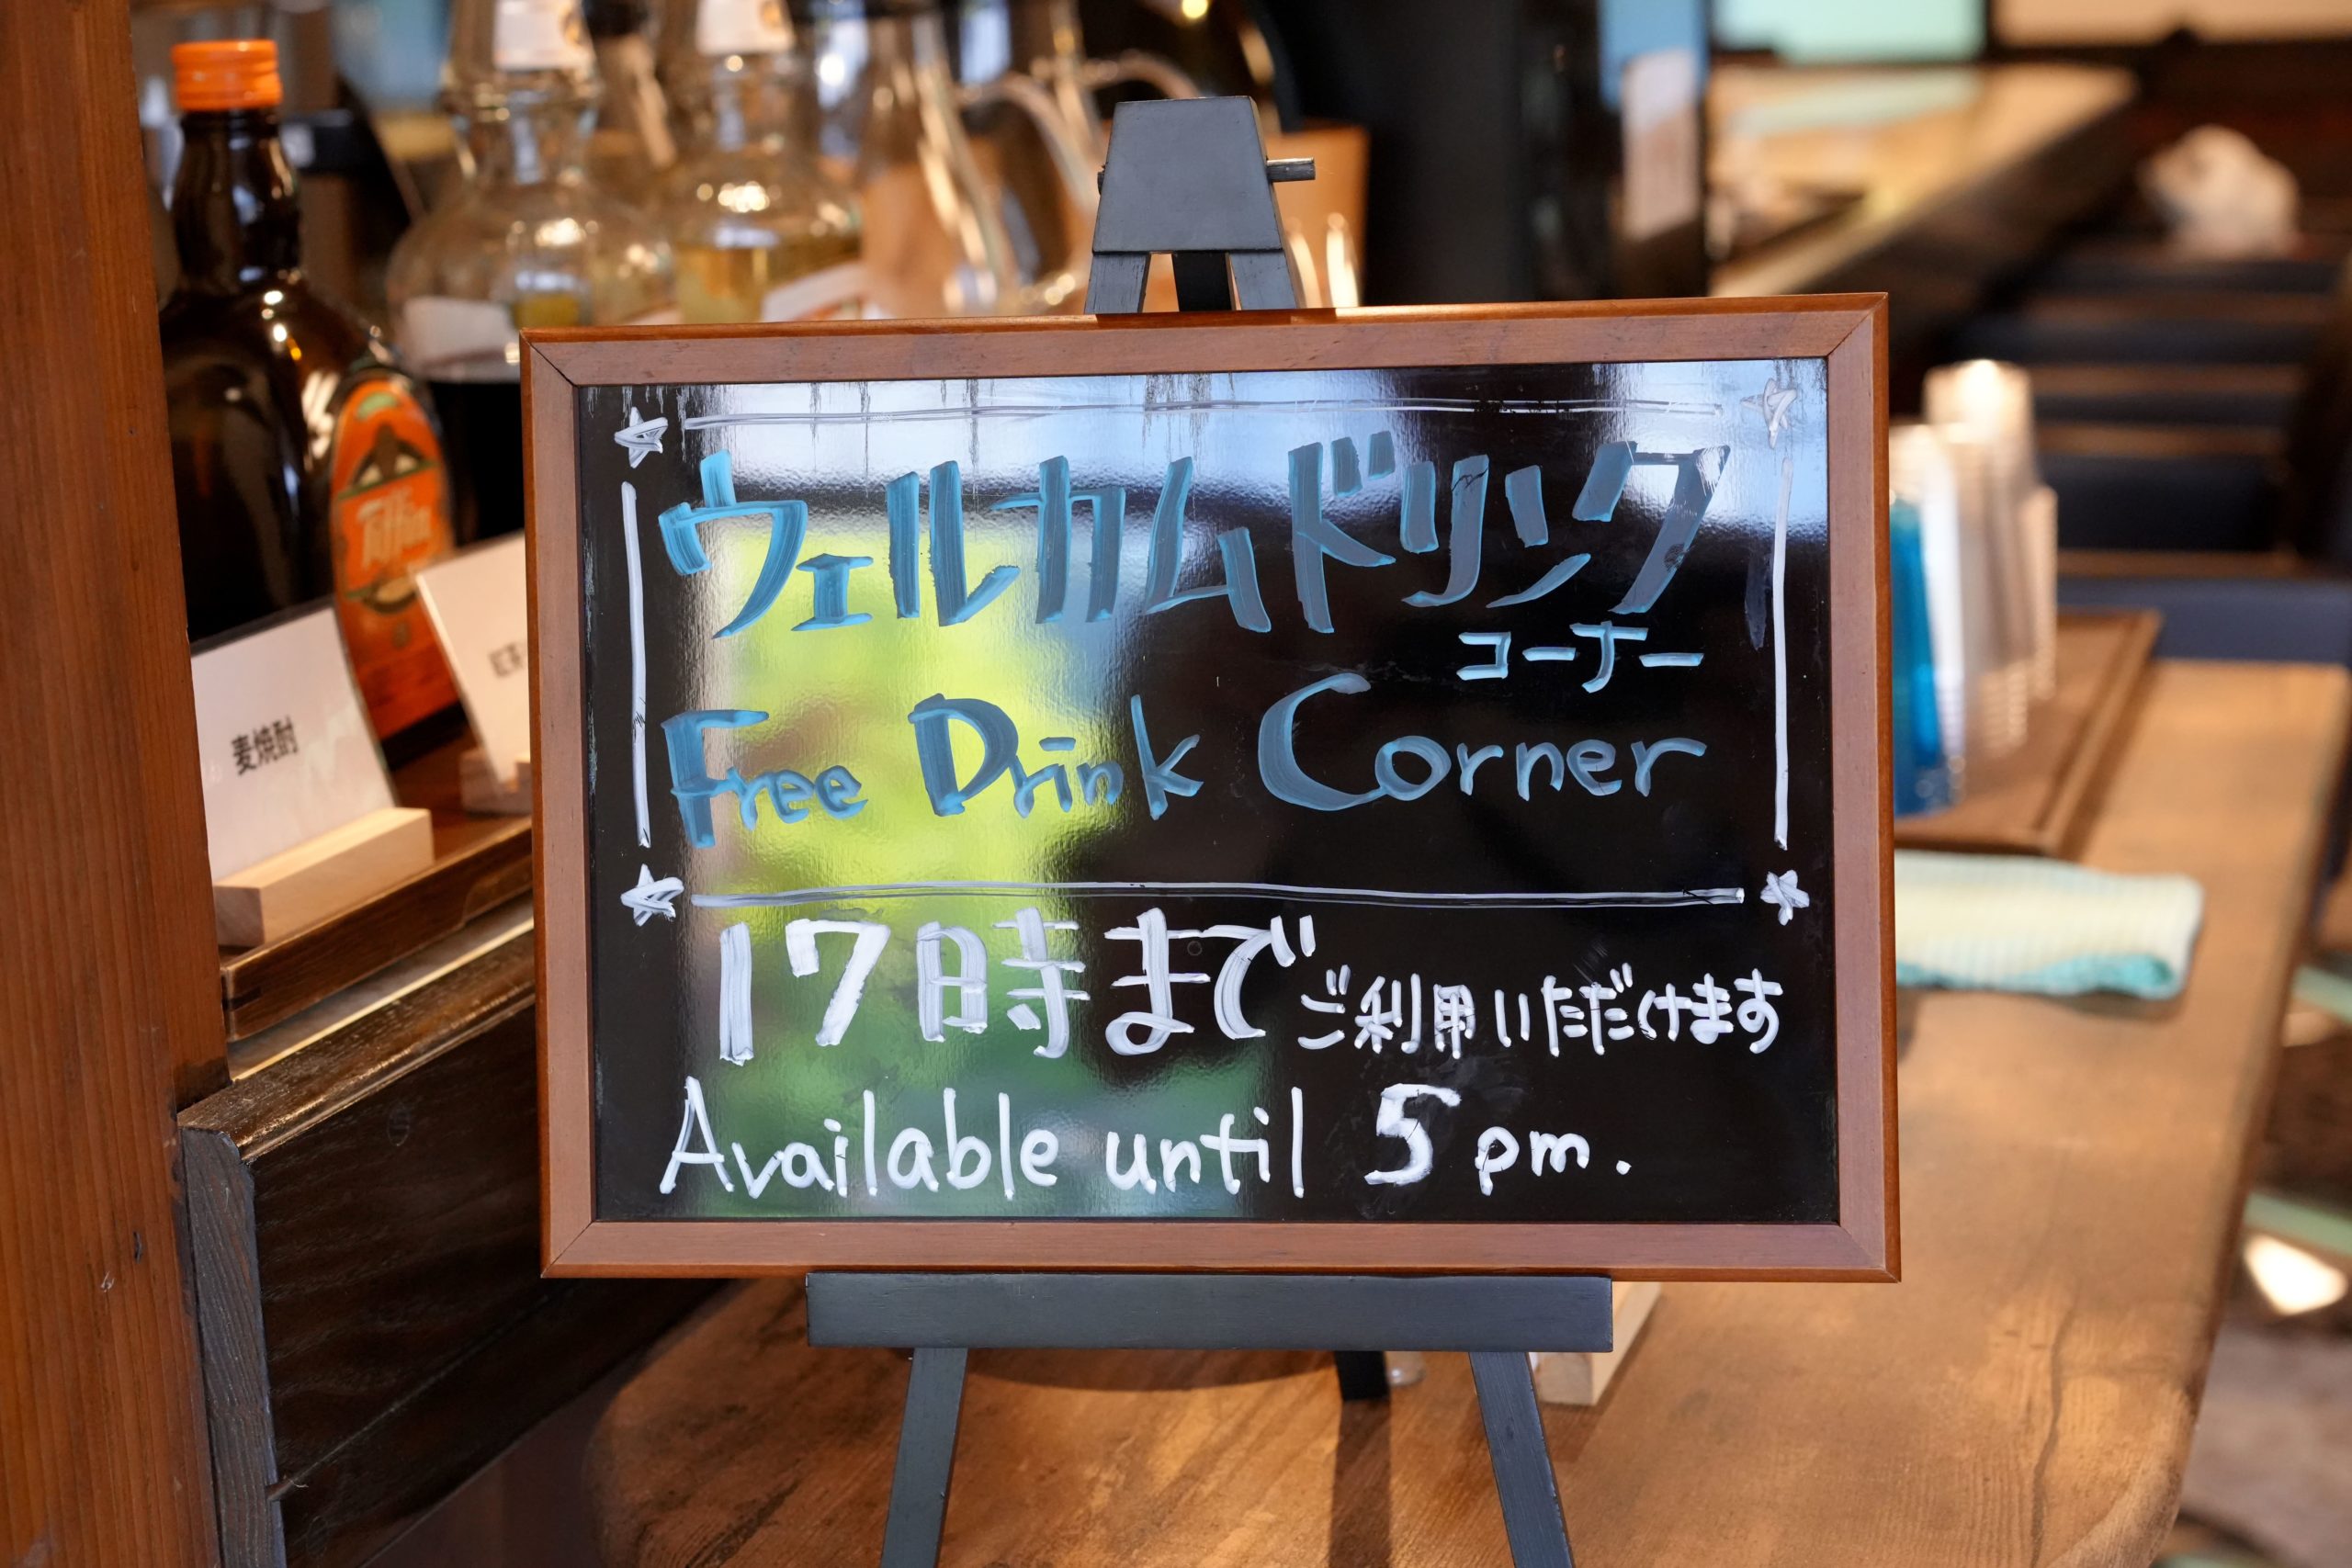 ウェルカムドリンク
コーナー
Free Drink Corner
17時まで ご利用いただけます
Available until 5 pm.
麦焼酎
Tiffin